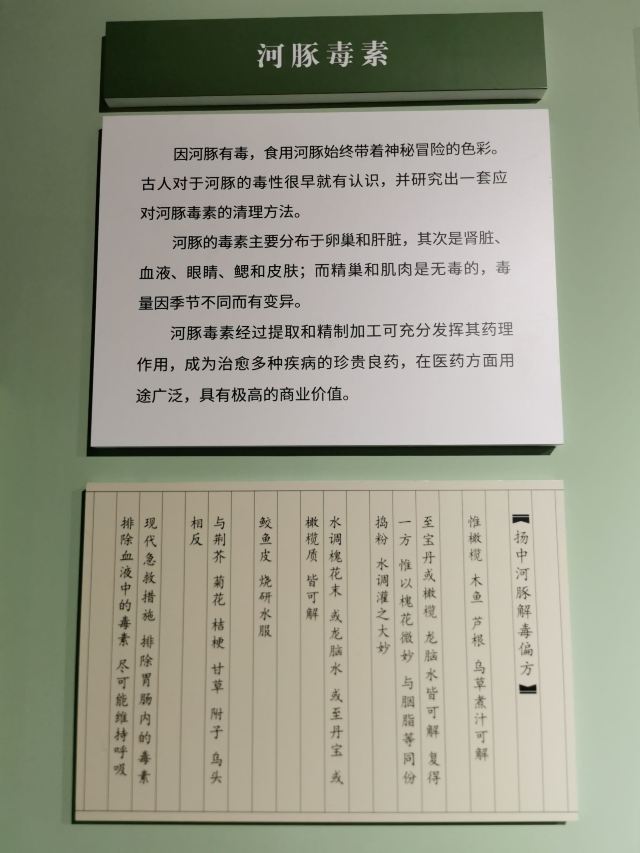 河豚毒素
因河豚有毒，食用河豚始终带着神秘冒险的色彩。
古人对于河豚的毒性很早就有认识，并研究出一套应
对河豚毒素的清理方法。
河豚的毒素主要分布于卵巢和肝脏，其次是肾脏、
血液、眼睛、鳃和皮肤；而精巢和肌肉是无毒的，毒
量因季节不同而有变异。
河豚毒素经过提取和精制加工可充分发挥其药理
作用，成为治愈多种疾病的珍贵良药，在医药方面用
途广泛，具有极高的商业价值。
【扬中河豚解毒偏方】
惟橄榄 木鱼 芦根 乌草煮汁可解
至宝丹或橄榄 龙脑水皆可解 复得
一方 惟以槐花微妙 与胭脂等同份
捣粉 水调灌之大妙
水调槐花末 或龙脑水 或至丹宝 或
橄榄质 皆可解
鲛鱼皮 烧研水服
与荆芥 菊花 桔梗 甘草 附子 乌头
相反
现代急救措施 排除胃肠内的毒素
排除血液中的毒素 尽可能维持呼吸